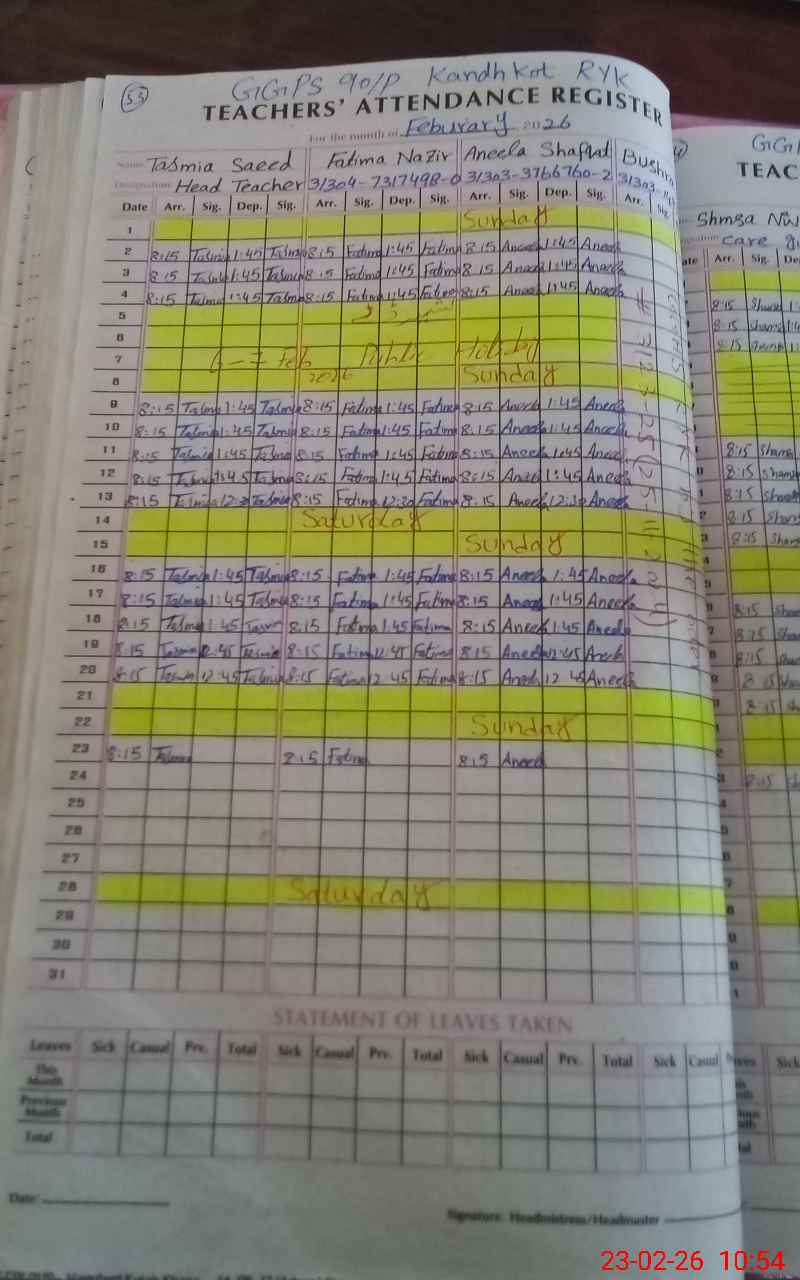 53
GGPS 90/P Kandhkot RYK
TEACHERS' ATTENDANCE REGISTER
For the month of Feburary 2026
Name Tasmia Saeed Fatima Nazir Aneela Shafqat Bushra
Designation Head Teacher 31304-7317498-0 31303-3766760-2 31303-
Date Arr. Sig. Dep. Sig. Arr. Sig. Dep. Sig. Arr. Sig. Dep. Sig. Arr. Sig.
1 Sunday
2 8:15 Tasmia 1:45 Tasmia 8:15 Fatima 1:45 Fatima 8:15 Aneela 1:45 Aneela
3 8:15 Tasmia 1:45 Tasmia 8:15 Fatima 1:45 Fatima 8:15 Aneela 1:45 Aneela
4 8:15 Tasmia 1:45 Tasmia 8:15 Fatima 1:45 Fatima 8:15 Aneela 1:45 Aneela
5
6
7 6-7 Feb 2026 Public Holiday
8 Sunday
9 8:15 Tasmia 1:45 Tasmia 8:15 Fatima 1:45 Fatima 8:15 Aneela 1:45 Aneela
10 8:15 Tasmia 1:45 Tasmia 8:15 Fatima 1:45 Fatima 8:15 Aneela 1:45 Aneela
11 8:15 Tasmia 1:45 Tasmia 8:15 Fatima 1:45 Fatima 8:15 Aneela 1:45 Aneela
12 8:15 Tasmia 1:45 Tasmia 8:15 Fatima 1:45 Fatima 8:15 Aneela 1:45 Aneela
13 8:15 Tasmia 12:30 Tasmia 8:15 Fatima 12:30 Fatima 8:15 Aneela 12:30 Aneela
14 Saturday
15 Sunday
16 8:15 Tasmia 1:45 Tasmia 8:15 Fatima 1:45 Fatima 8:15 Aneela 1:45 Aneela
17 8:15 Tasmia 1:45 Tasmia 8:15 Fatima 1:45 Fatima 8:15 Aneela 1:45 Aneela
18 8:15 Tasmia 1:45 Tasmia 8:15 Fatima 1:45 Fatima 8:15 Aneela 1:45 Aneela
19 8:15 Tasmia 12:45 Tasmia 8:15 Fatima 12:45 Fatima 8:15 Aneela 12:45 Aneela
20 8:15 Tasmia 12:45 Tasmia 8:15 Fatima 12 45 Fatima 8:15 Aneela 12 45 Aneela
21
22 Sunday
23 8:15 Tasmia 8:15 Fatima 8:15 Aneela
24
25
26
27
28 Saturday
29
30
31
STATEMENT OF LEAVES TAKEN
Leaves Sick Casual Prv. Total Sick Casual Prv. Total Sick Casual Prv. Total Sick Casual
This Month
Previous Month
Total
Date:
Signature Headmistress/Headmaster
GGP
TEAC
Shmsa
care
Arr. Sig.
8:15
8:15
8:15
8:15 Shams
8:15 Shams
8:15
8:15
8:15
8:15
8:15
8:15
8:15
8:15
8:15
Sick
23-02-26 10:54